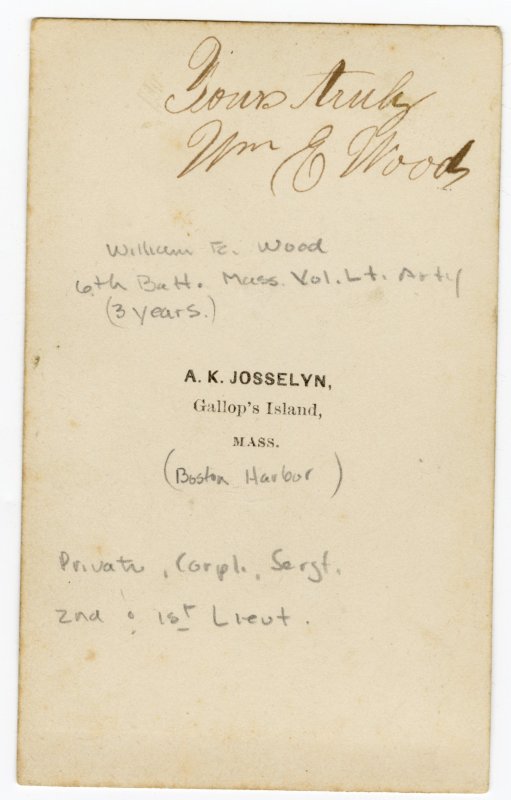 Yours truly
Wm E Wood
William E. Wood
6th Batt. Mass. Vol. Lt. Arty
(3 years.)
A. K. JOSSELYN,
Gallop's Island,
MASS.
(Boston Harbor)
Private, Corpl., Sergt.
2nd & 1st Lieut.